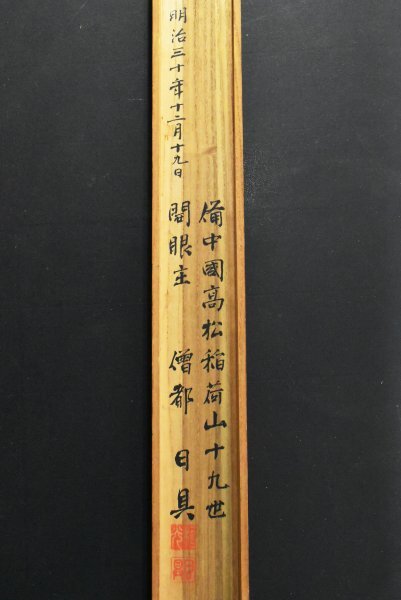 備中國高松稲荷山十九世
明治三十年十二月十九日
開眼主 僧都 日具